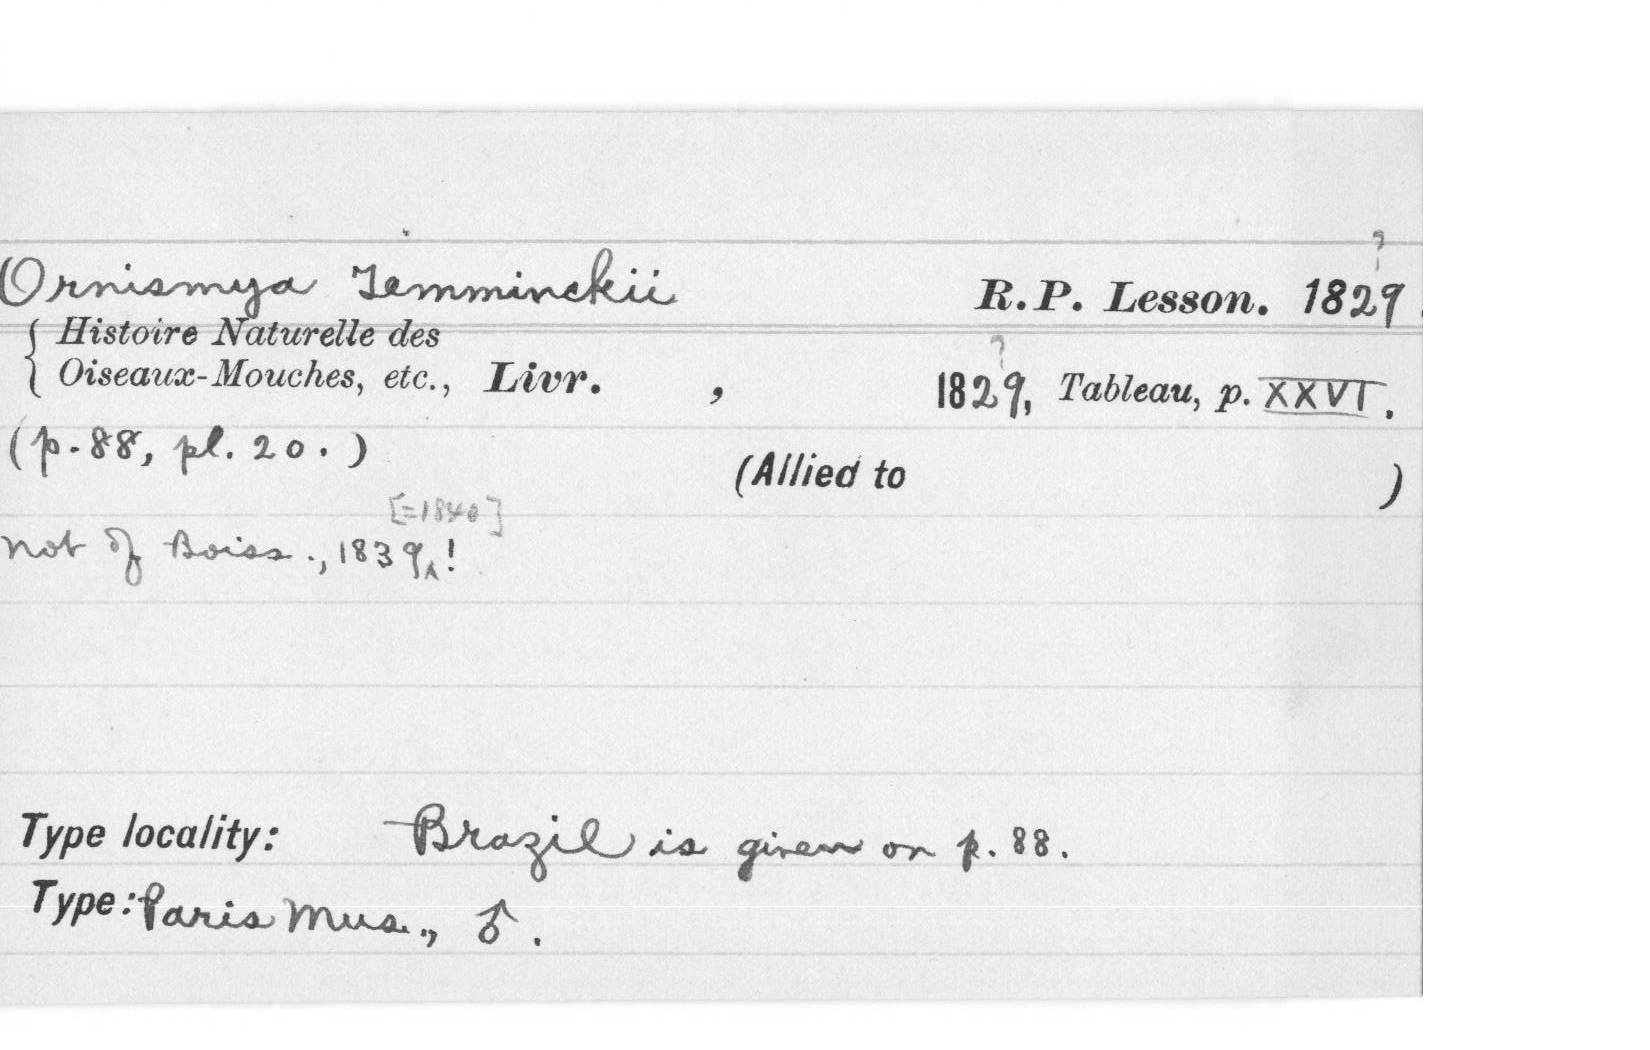 ?
Ornismya Temminckii R.P. Lesson. 1829.
{ Histoire Naturelle des
Oiseaux-Mouches, etc., Livr. , 1829, Tableau, p. XXVI.
?
(p. 88, pl. 20.)
(Allied to )
[=1840]
not of Boiss., 1839^!
Type locality: Brazil is given on p. 88.
Type: Paris Mus., ♂.